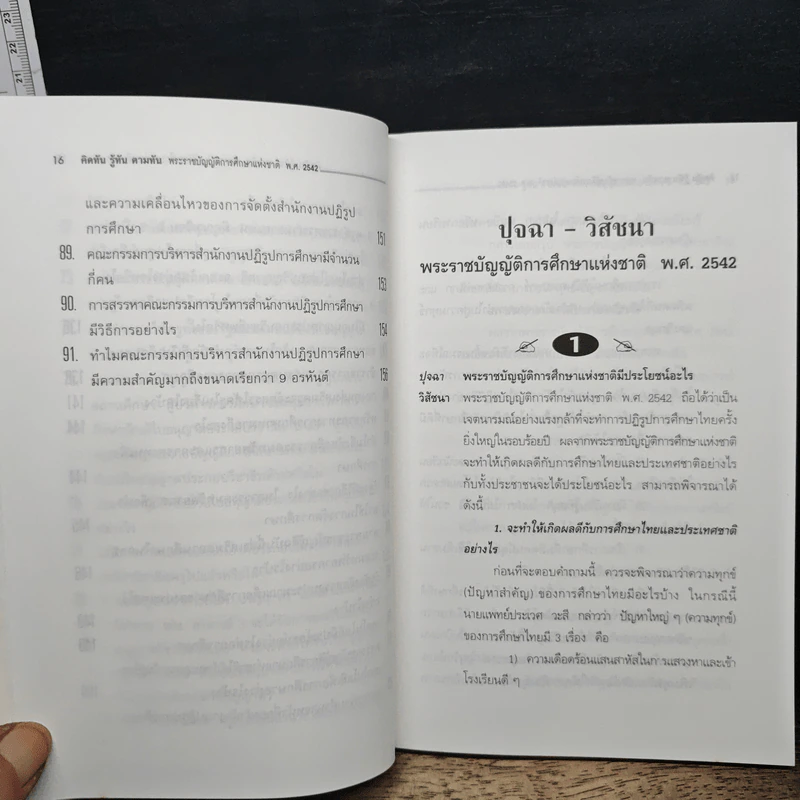 23
22
21
16 คิดทัน รู้ทัน ตามทัน พระราชบัญญัติการศึกษาแห่งชาติ พ.ศ. 2542
และความเคลื่อนไหวของการจัดตั้งสำนักงานปฏิรูป
การศึกษา 151
89. คณะกรรมการบริหารสำนักงานปฏิรูปการศึกษามีจำนวน
กี่คน 153
90. การสรรหาคณะกรรมการบริหารสำนักงานปฏิรูปการศึกษา
มีวิธีการอย่างไร 154
91. ทำไมคณะกรรมการบริหารสำนักงานปฏิรูปการศึกษา
มีความสำคัญมากถึงขนาดเรียกว่า 9 อรหันต์ 156
ปุจฉา – วิสัชนา
พระราชบัญญัติการศึกษาแห่งชาติ พ.ศ. 2542
1
ปุจฉา พระราชบัญญัติการศึกษาแห่งชาติมีประโยชน์อะไร
วิสัชนา พระราชบัญญัติการศึกษาแห่งชาติ พ.ศ. 2542 ถือได้ว่าเป็น
เจตนารมณ์อย่างแรงกล้าที่จะทำการปฏิรูปการศึกษาไทยครั้ง
ยิ่งใหญ่ในรอบร้อยปี ผลจากพระราชบัญญัติการศึกษาแห่งชาติ
จะทำให้เกิดผลดีกับการศึกษาไทยและประเทศชาติอย่างไร
กับทั้งประชาชนจะได้ประโยชน์อะไร สามารถพิจารณาได้
ดังนี้
1. จะทำให้เกิดผลดีกับการศึกษาไทยและประเทศชาติ
อย่างไร
ก่อนที่จะตอบคำถามนี้ ควรจะพิจารณาว่าความทุกข์
(ปัญหาสำคัญ) ของการศึกษาไทยมีอะไรบ้าง ในกรณีนี้
นายแพทย์ประเวศ วะสี กล่าวว่า ปัญหาใหญ่ ๆ (ความทุกข์)
ของการศึกษาไทยมี 3 เรื่อง คือ
1) ความเดือดร้อนแสนสาหัสในการแสวงหาและเข้า
โรงเรียนดี ๆ